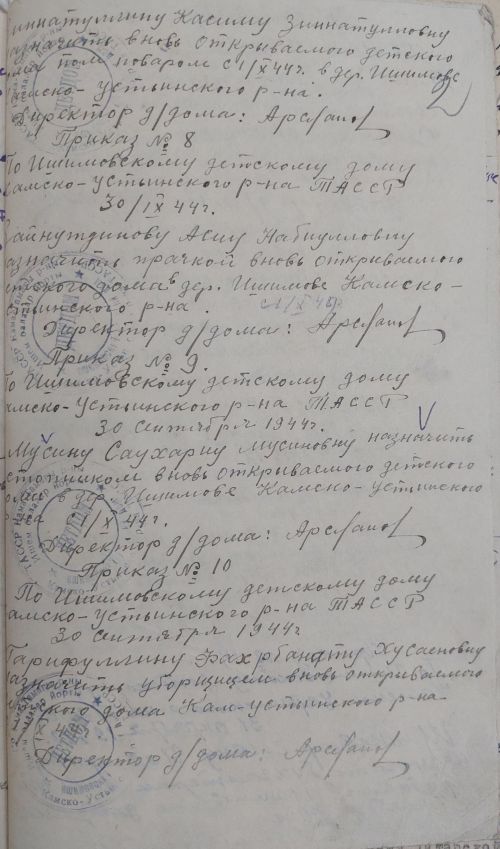 иннатуллину Касиму Зиннатулловну
азначить вновь открываемого детского
ома пом поваром с 1/X 44г. в дер. Ишимове
Камско-устьинского р-на.
Директор д/дома: Арсланов
Приказ № 8
По Ишимовскому детскому дому
камско-устьинского р-на ТАССР
30/IX 44г.
Зайнутдинову Асию Набиулловну
азначить прачкой вновь открываемого
етского дома в дер. Ишимове Камско-
стьинского р-на. с 1/X 44г
Директор д/дома: Арсланов
Приказ № 9.
По Ишимовскому детскому дому
амско-устьинского р-на ТАССР
30 сентября 1944г.
Мусину Саухарию Мусиновну назначить
истопником вновь открываемого детского
дома в дер. Ишимове Камско-устинского
р-на с 1/X 44г.
Директор д/дома: Арсланов
Приказ № 10
По Ишимовскому детскому дому
амско-устьинского р-на ТАССР
30 сентября 1944г
Гарифуллину Хусаеновну
азначить уборщицем вновь открываемого
детского дома Кам-устьинского р-на
Директор д/дома: Арсланов